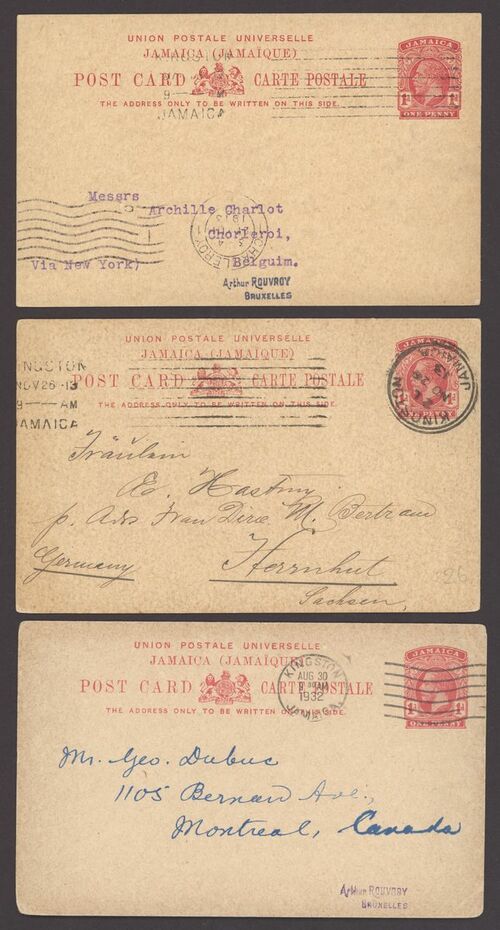 UNION POSTALE UNIVERSELLE
JAMAICA (JAMAÏQUE)
KINGSTON
JAMAICA
POST CARD CARTE POSTALE
THE ADDRESS ONLY TO BE WRITTEN ON THIS SIDE.
9— AM
JAMAICA
1D 1D
ONE PENNY
Messrs
Archille Charlot
Chorleroi,
Via New York) Belguim.
CHARLEROY 1
1913
Arthur ROUVROY
BRUXELLES
UNION POSTALE UNIVERSELLE
JAMAICA (JAMAIQUE)
KINGSTON
NOV 26 -13
9— AM
JAMAICA
POST CARD CARTE POSTALE
THE ADDRESS ONLY TO BE WRITTEN ON THIS SIDE.
KINGSTON
JAMAICA
PENNY
Fräulein
E. Hasting
p. Adr. Frau M. Bertram
Germany Herrnhut
Sachsen.
26
UNION POSTALE UNIVERSELLE
JAMAICA (JAMAÏQUE)
JAMAICA
POST CARD CARTE POSTALE
THE ADDRESS ONLY TO BE WRITTEN ON THIS SIDE.
KINGSTON
AUG 30
1932
JAMAICA
1D 1D
Mr. Geo. Dubuc
1105 Bernard Ave.,
Montreal, Canada
Arthur ROUVROY
BRUXELLES